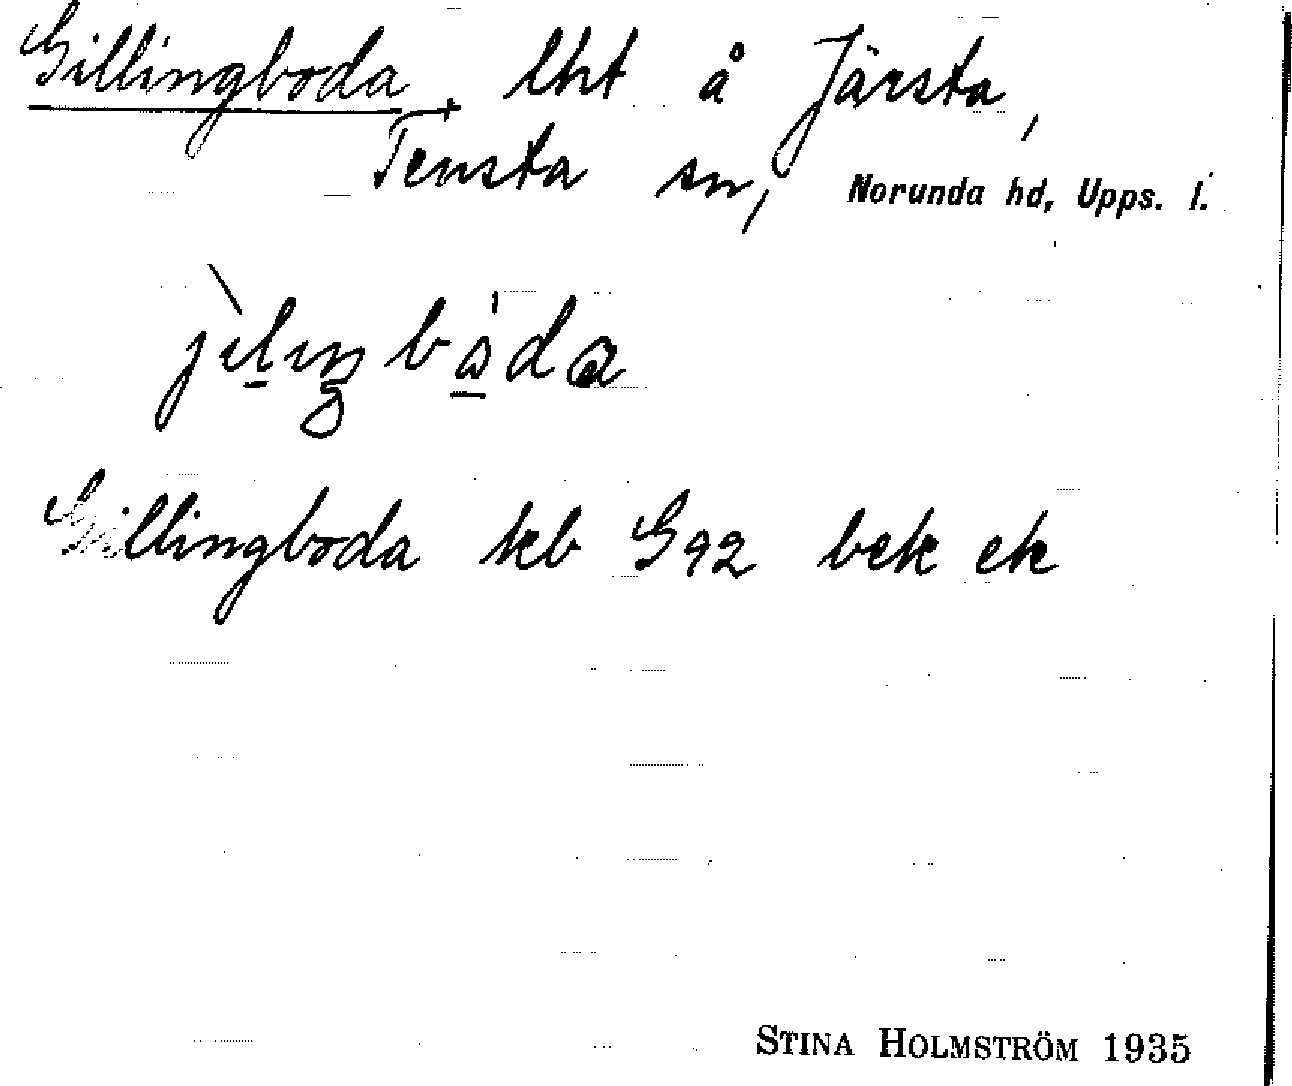 Gillingboda, lht å Järsta,
Tensta sn, Norunda hd, Upps. l.
Gillingboda kb G92 bek ek
STINA HOLMSTRÖM 1935